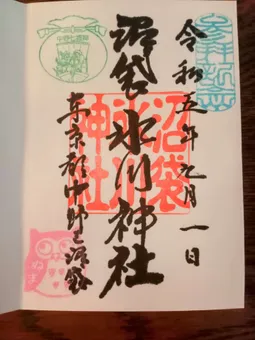 令和五年元月一日
沼袋氷川神社
東京都中野区沼袋
沼袋
氷川
神社